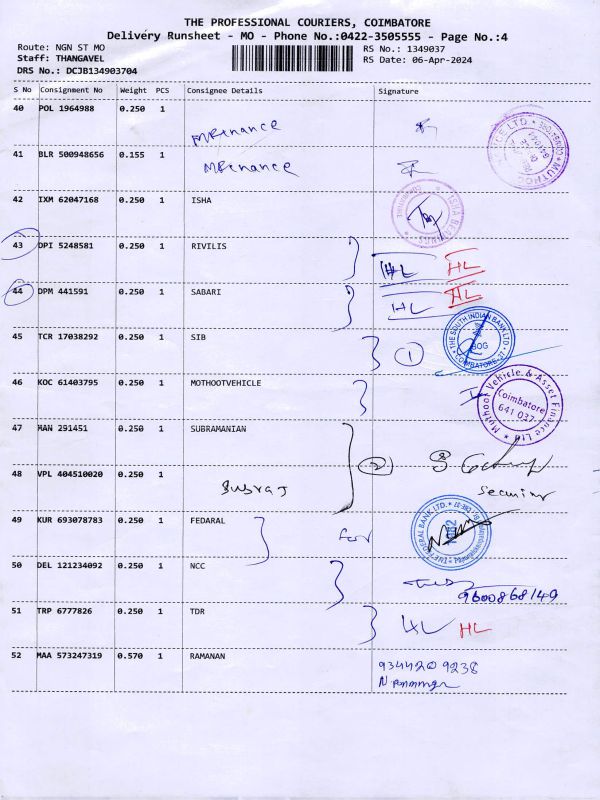 THE PROFESSIONAL COURIERS, COIMBATORE
Delivery Runsheet - MO - Phone No.:0422-3505555 - Page No.:4
Route: NGN ST MO
RS No.: 1349037
Staff: THANGAVEL
RS Date: 06-Apr-2024
DRS No.: DCJB134903704
S No Consignment No Weight PCS Consignee Details Signature
40 POL 1964988 0.250 1
41 BLR 500948656 0.155 1
42 IXM 62047168 0.250 1 ISHA
43 DPI 5248581 0.250 1 RIVILIS HL HL
44 DPM 441591 0.250 1 SABARI HL HL
45 TCR 17038292 0.250 1 SIB 1 THE SOUTH INDIAN BANK LTD. COIMBATORE-27
46 KOC 61403795 0.250 1 MOTHOOTVEHICLE Muthoot Vehicle & Asset Finance Ltd Coimbatore 641 037
47 MAN 291451 0.250 1 SUBRAMANIAN
48 VPL 404510020 0.250 1 2
49 KUR 693078783 0.250 1 FEDARAL THE FEDERAL BANK LTD.
50 DEL 121234092 0.250 1 NCC
9600868149
51 TRP 6777826 0.250 1 TDR HL HL
52 MAA 573247319 0.570 1 RAMANAN 9344209238